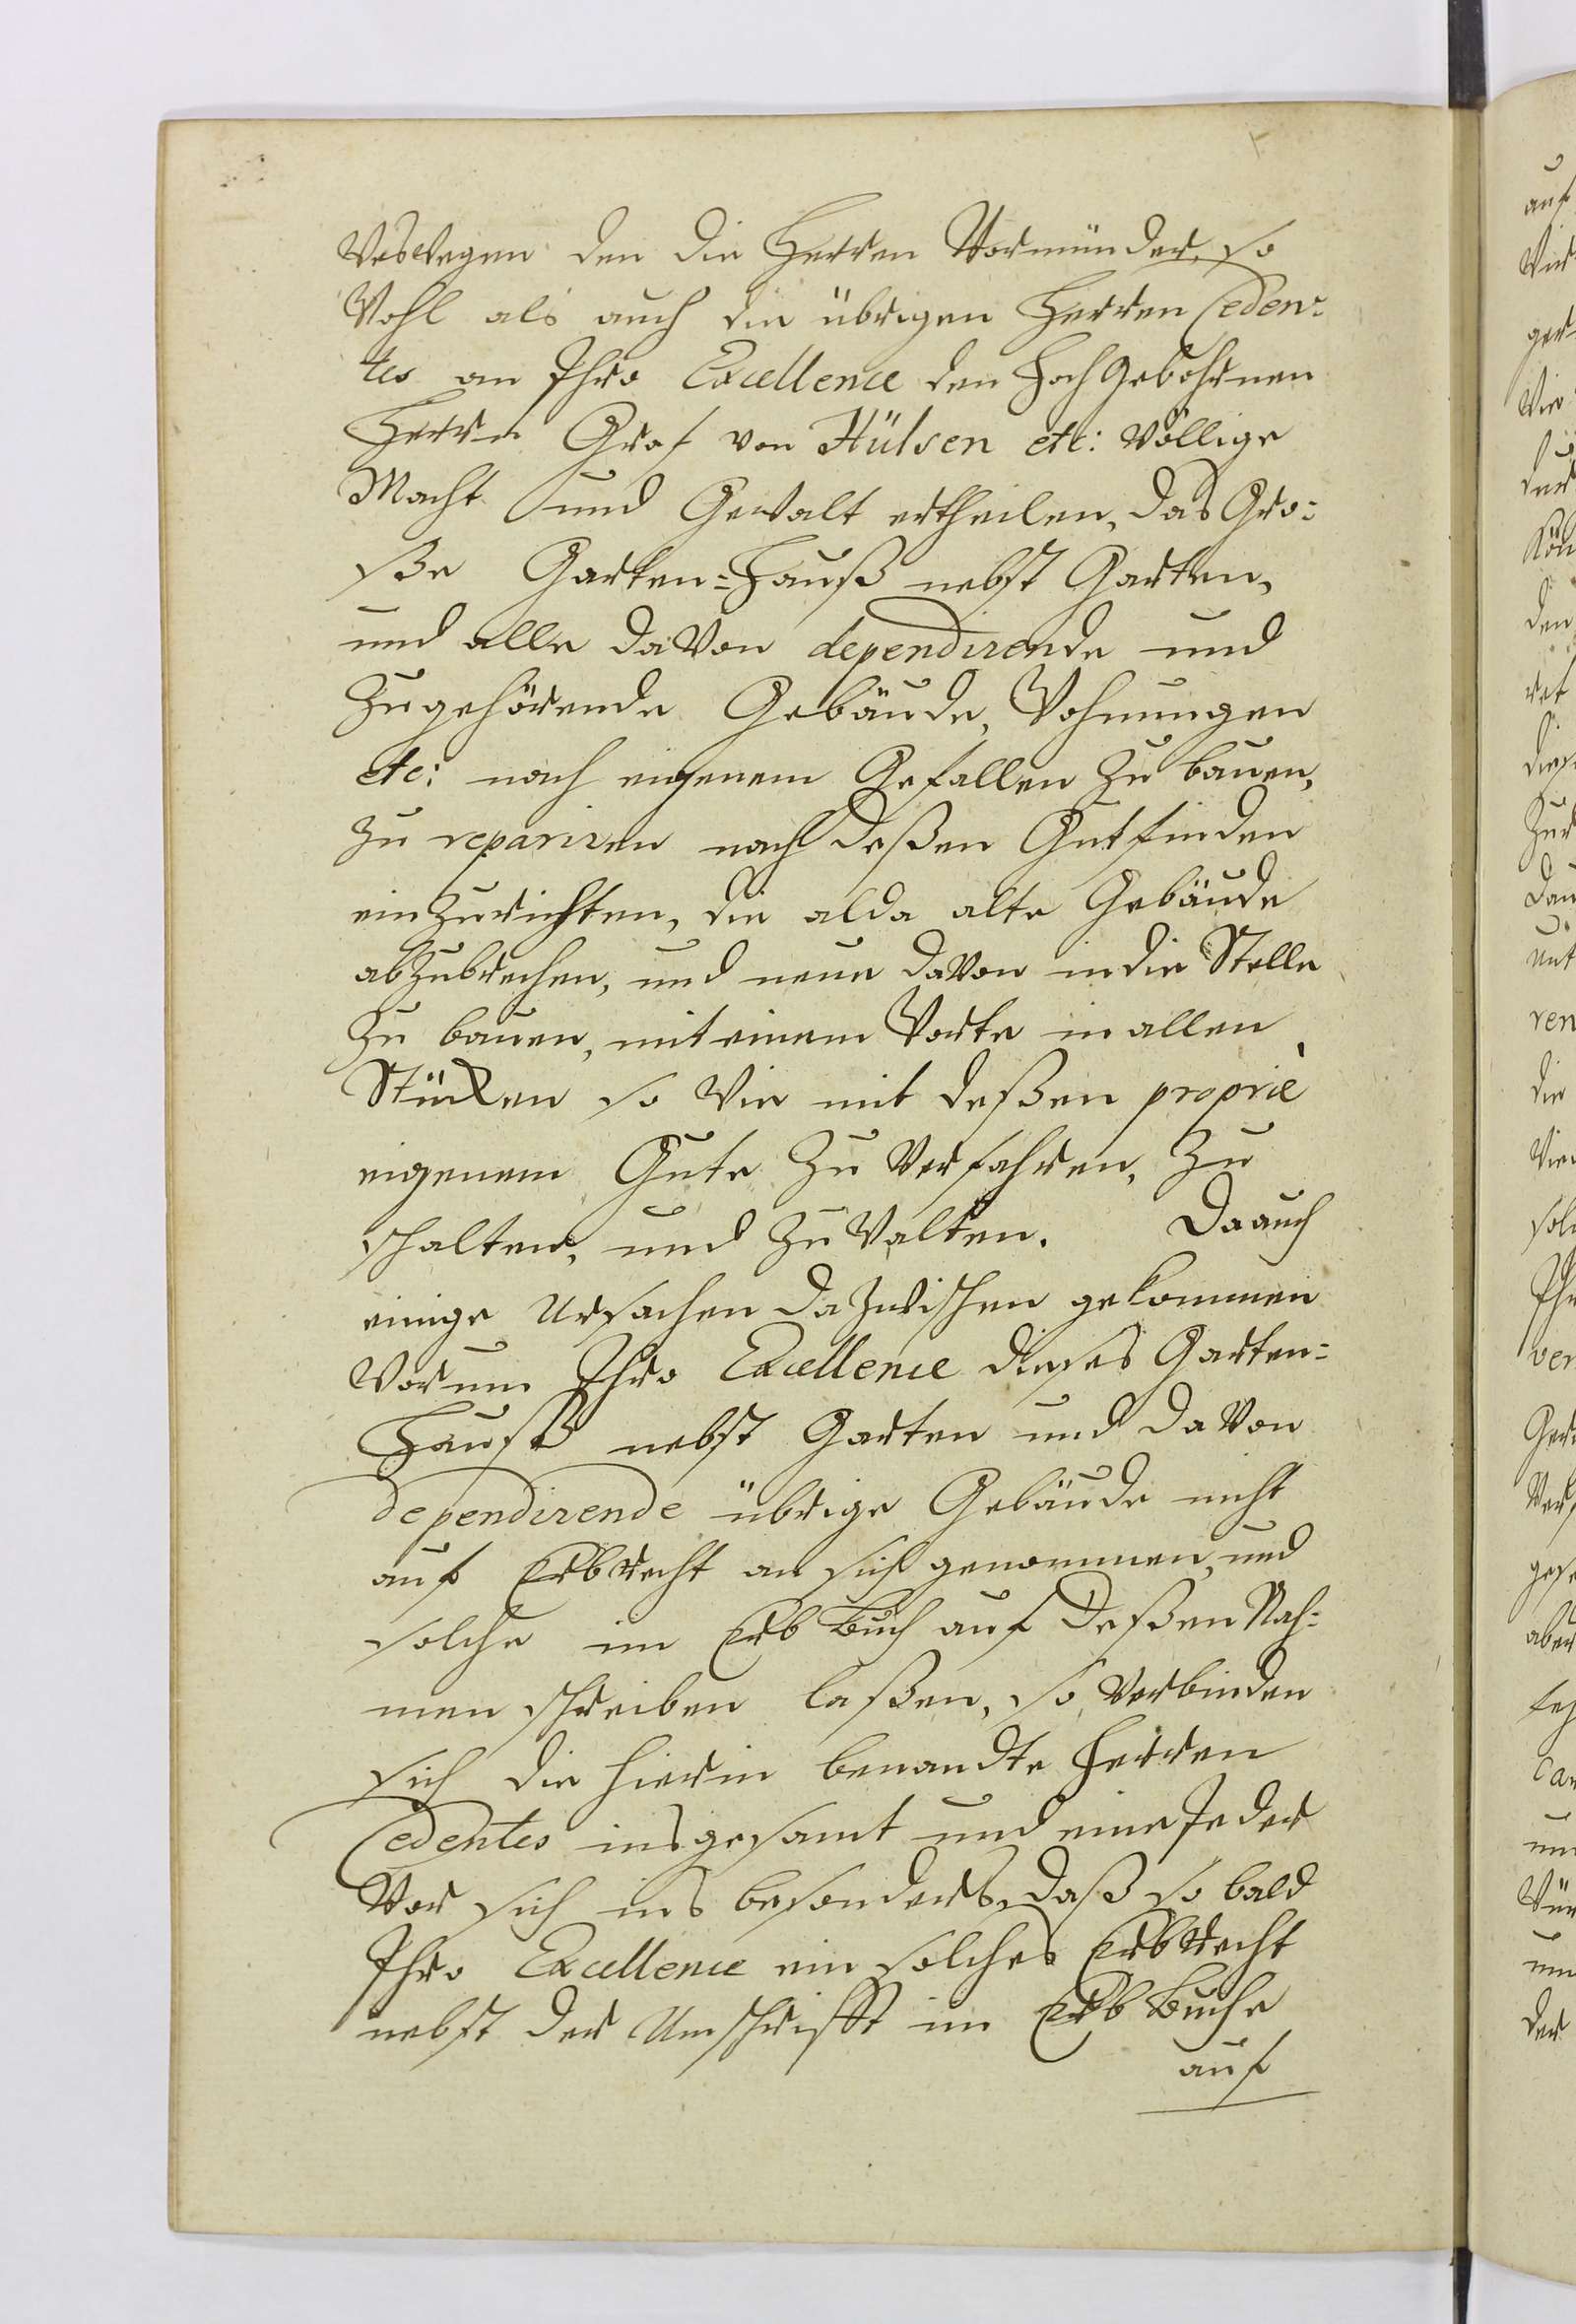 Weswegen den die Herren Vormünder, so
Wohl als auch die übrigen Herren Ceden-
tes an Ihro Excellence den Hoch Gebohrnen
Herrn Graf von Hülsen etc: Völlige
Macht und Gewalt ertheilen, das Gro-
ße Garten-Hauß nebst Garten,
und alle daVon dependirende und
Zugehörende Gebäude, Wohnungen
etc: nach eigenem Gefallen Zu bauen,
Zu repariren nach deßen Gutfinden
einZurichten, die alda alte Gebäude
abZubrechen, und neue daVon in die Stelle
Zu bauen, mit einem Worte in allen
Stücken so Wie mit deßen propriè
eigenem Gute Zu Verfahren, Zu
schalten, und Zu Walten. Da auch
einige Ursachen daZwischen gekommen
Worum Ihro Excellence dieses Garten-
Hauß nebst Garten und daVon
dependirende übrige Gebäude nicht
auf ErbRecht an sich genommen, und
solche im Erb Buch auf deßen Nah-
men schreiben laßen, so Verbinden
sich die hierin benandte Herren
Cedentes insgesamt und eine Jeder
Vor sich ins besonders, daß so bald
Ihro Excellence ein solches ErbRecht
nebst der Umschrifft im Erb Buche
auf